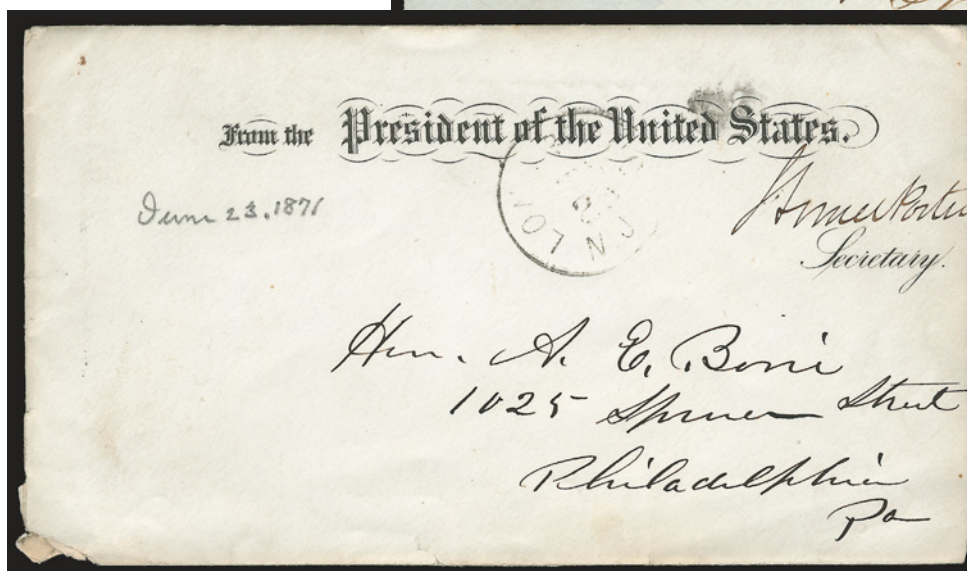 From the President of the United States.
June 23. 1871
Secretary.
Hon. A. E. Borie
1025 Spruce Street
Philadelphia
Pa